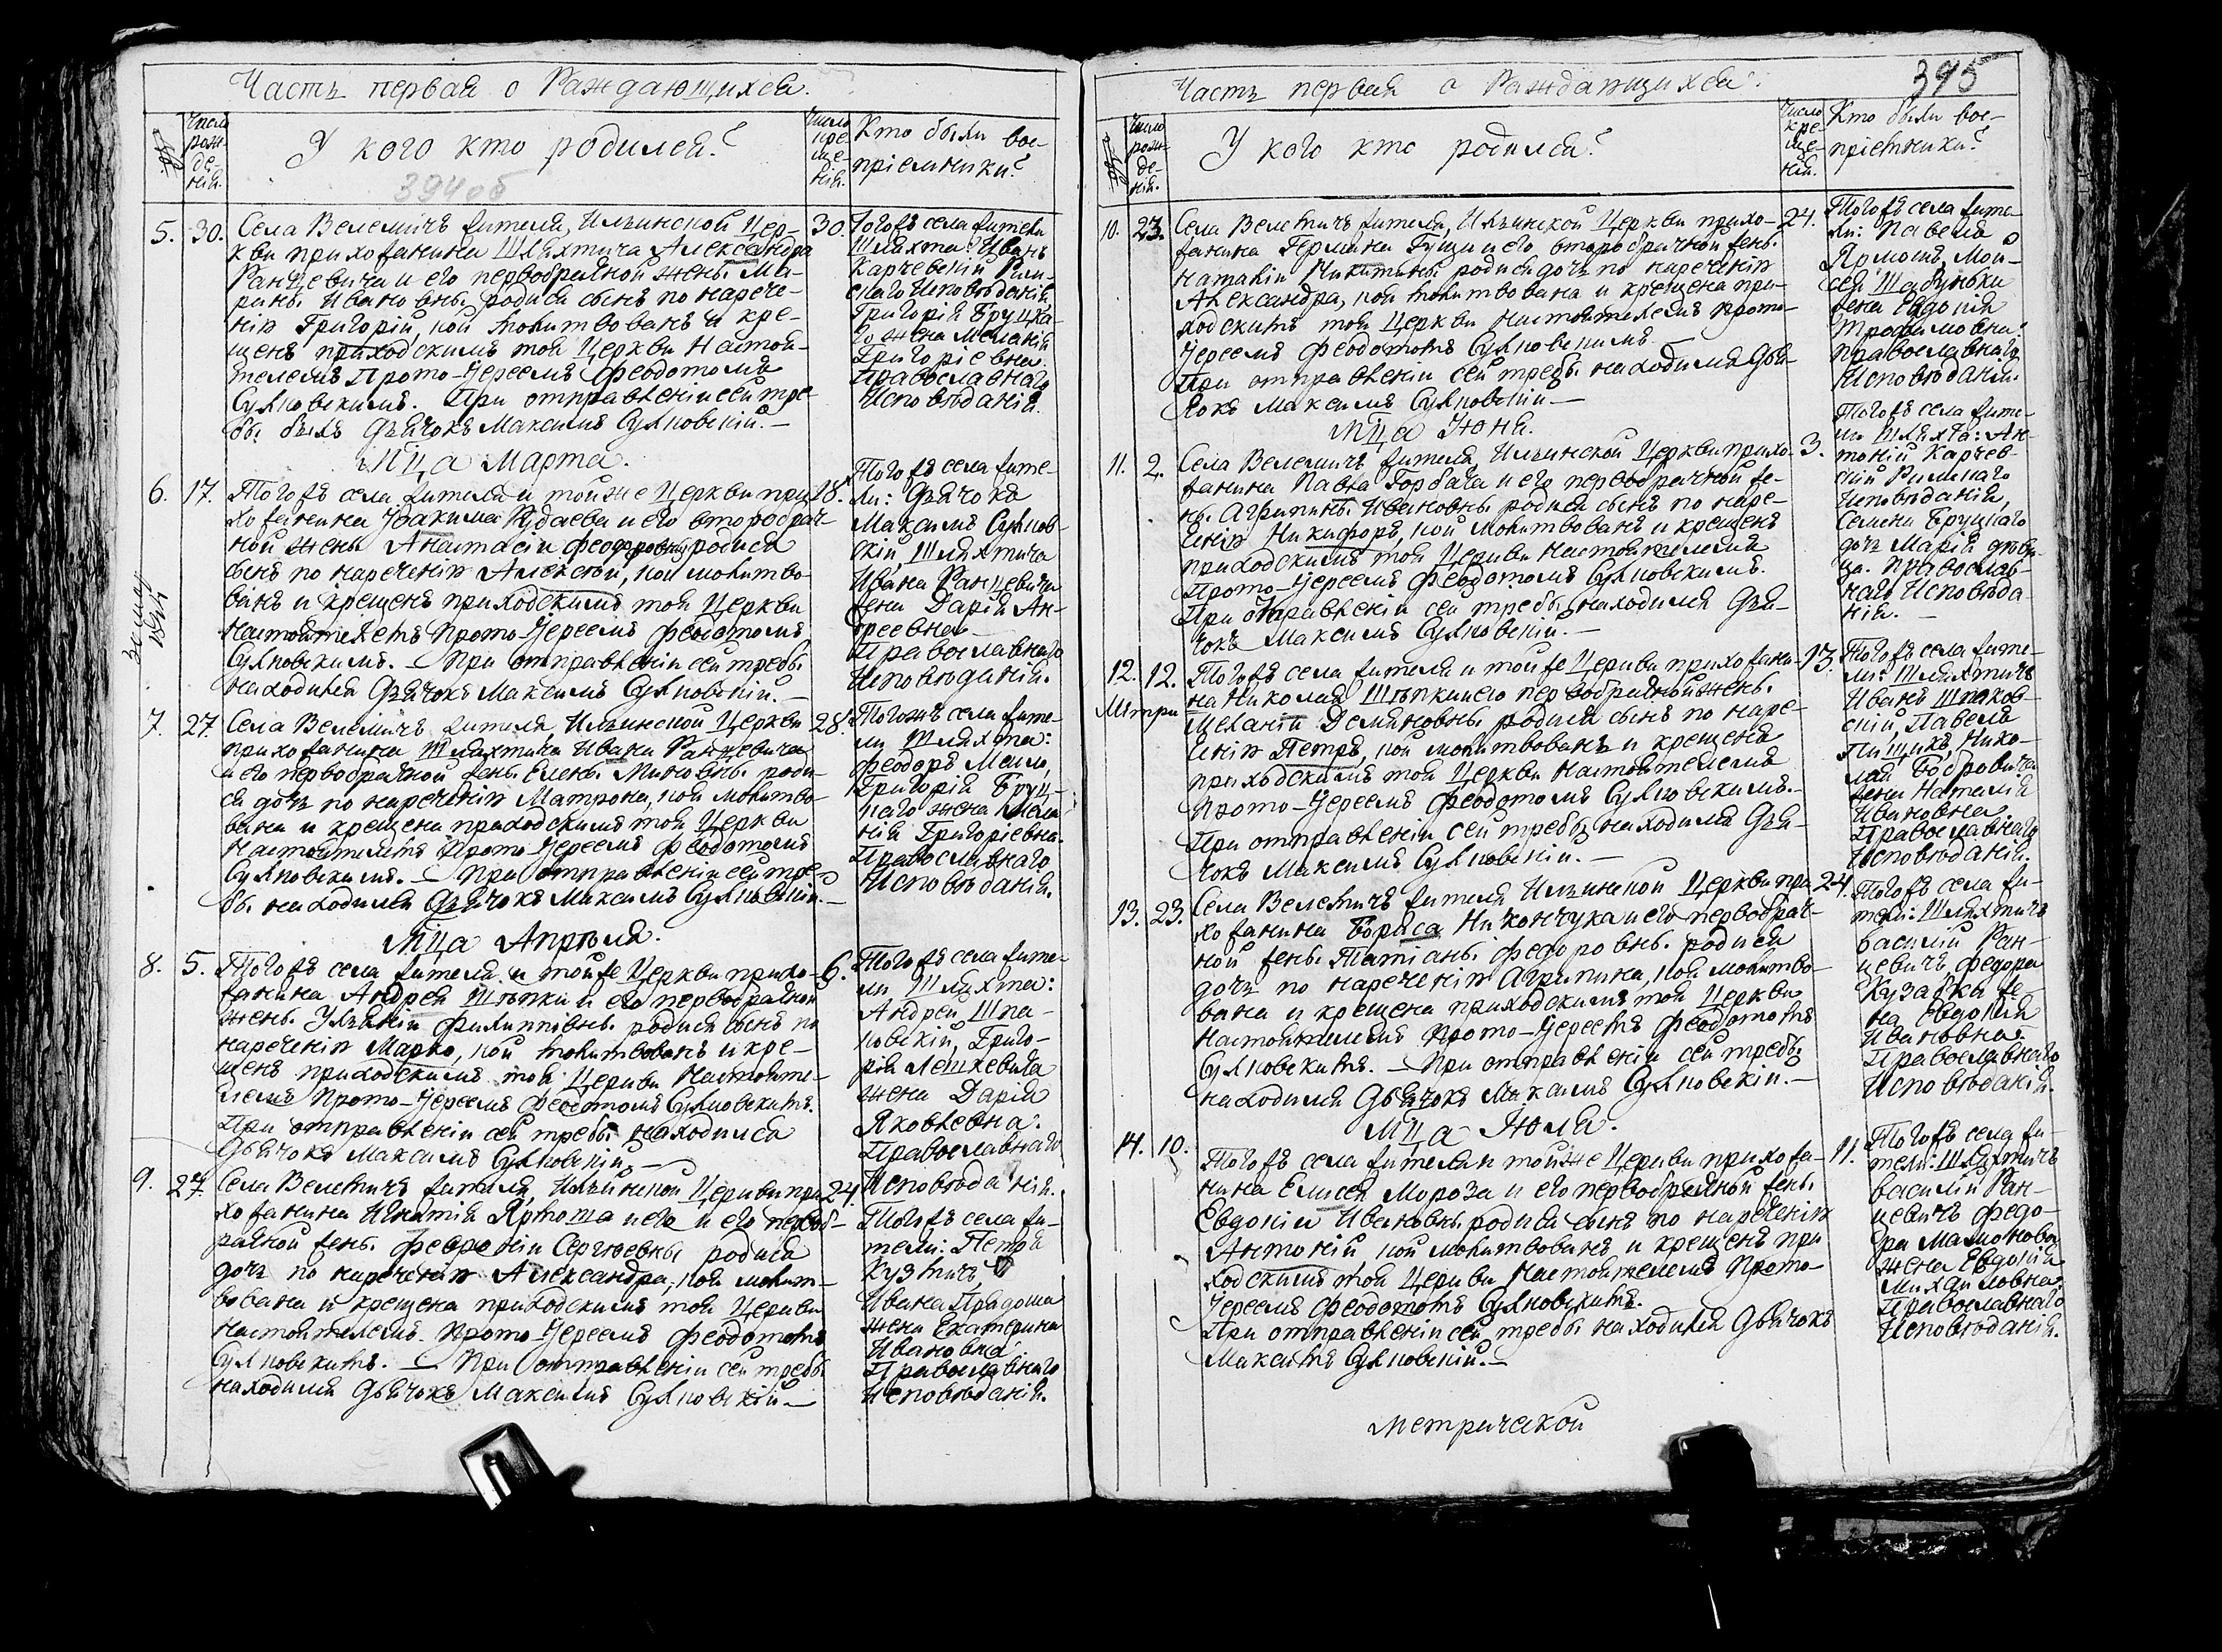 Часть первая о Раждающихся.
Число рож-де-нія.
У кого кто родился?
394 об
Число кре-ще-нія.
Кто были вос-
пріемники?
5. 30. Села Велемичъ жителя, Ильинской Цер-
кви прихожанина Шляхтича Александра
Ранцевича и его первобрачной жены Ма-
рины Ивановны родися сынъ по нарече-
нію Григорій, кой молитвованъ и кре-
щенъ приходскимъ той Церкви Настоя-
телемъ Прото-Іереемъ Феодотомъ
Сулковскимъ. При отправленіи сей тре-
бы былъ Дьячокъ Максимъ Сулковскій.—
30. Тогожъ села жители
Шляхта: Иванъ
Карчевскій Рим-
скаго Исповѣданія,
Григорія Бруцка-
го жена Меланія
Григоріевна.
Православнаго
Исповѣданія.
Мца Марта.
6. 17. Тогожъ села жителя и тойже Церкви при-
хожанина Іоакима Рудаева и его второбрач-
ной жены Анастасіи Феодоровны родися
сынъ по нареченію Алексѣй, кой молитво-
ванъ и крещенъ приходскимъ той Церкви
Настоятелемъ Прото-Іереемъ Феодотомъ
Сулковскимъ.— При отправленіи сей требы
находился Дьячокъ Максимъ Сулковскій.—
18. Тогожъ села жите-
ли: Дьячокъ
Максимъ Сулков-
скій, Шляхтича
Ивана Ранцевича
жена Дарія Ан-
дреевна
Православнаго
Исповѣданія.
7. 27. Села Велемичъ жителя, Ильинской Церкви
прихожанина Шляхтича Ивана Ранцевича
и его первобрачной жены Елены Миновны роди-
ся дочь по нареченію Матрона, коя молитво-
вана и крещена приходскимъ той Церкви
Настоятелемъ Прото-Іереемъ Феодотомъ
Сулковскимъ.— При отправленіи сей тре-
бы находился Дьячокъ Максимъ Сулковскій.—
28. Тогожъ села жите-
ли Шляхта:
Феодоръ
Григорія Бруц-
каго жена Мела-
нія Григоріевна.
Православнаго
Исповѣданія.
Мца Апрѣля.
8. 5. Тогожъ села жителя и тойже Церкви прихо-
жанина Андрея Шлыпки и его первобрачной
жены Ульяніи Филипповны родися сынъ по
нареченію Марко, кой молитвованъ и кре-
щенъ приходскимъ той Церкви Настояте-
лемъ Прото-Іереемъ Феодотомъ Сулковскимъ.
При отправленіи сей требы находился
Дьячокъ Максимъ Сулковскій.—
6. Тогожъ села жите-
ли Шляхта:
Андрей Шпа-
ковскій, Григо-
рія Лешкевича
жена Дарія
Яковлевна.
Православнаго
Исповѣданія.
9. 27. Села Велемичъ жителя, Ильинской Церкви при-
хожанина Игнатія Ярмоша и его и его первоб-
рачной жены Февроніи Сергѣевны родися
дочь по нареченію Александра, коя молит-
вована и крещена приходскимъ той Церкви
Настоятелемъ Прото-Іереемъ Феодотомъ
Сулковскимъ.— При отправленіи сей требы
находился Дьячокъ Максимъ Сулковскій.—
24. Тогожъ села жи-
тели: Петръ
Кузмичъ,
Ивана Прадоша
жена Екатерина
Ивановна
Православнаго
Исповѣданія.
Часть первая о Раждающихся.
395
Число рож-де-нія.
У кого кто родился?
Число кре-ще-нія.
Кто были вос-
пріемники?
10. 23. Села Велемичъ жителя, Ильинской Церкви прихо-
жанина Германа Гущи и его второбрачной жены
Наталіи Никитины родися дочь по нареченію
Александра, коя молитвована и крещена при-
ходскимъ той Церкви Настоятелемъ Прото-
Іереемъ Феодотомъ Сулковскимъ.
При отправленіи сей требы находился Дья-
чокъ Максимъ Сулковскій—
24. Тогожъ села жите-
ли: Павелъ
Ярмошъ, Мои-
сея Шабуньки
жена Евдокія
Трофимовна.
Православнаго
Исповѣданія.
Мца Юня.
11. 2. Села Велемичъ жителя, Ильинской Церкви прихо-
жанина Павла Горбача и его первобрачной же-
ны Агрипины Ивановны родися сынъ по наре-
ченію Никифоръ, кой молитвованъ и крещенъ
приходскимъ той Церкви Настоятелемъ
Прото-Іереемъ Феодотомъ Сулковскимъ.
При отправленіи сей требы находился Дья-
чокъ Максимъ Сулковскій.—
3. Тогожъ села жите-
ли Шляхта: Ан-
тоній Карчев-
скій Римскаго
Исповѣданія,
Семена Бруцкаго
дочь Марія дѣви-
ца. Православ-
наго Исповѣда-
нія.—
12. 12. Тогожъ села жителя и тойже Церкви прихожани-
на Николая Шлыпки и его первобрачной жены
Меланіи Демяновны родися сынъ по наре-
ченію Петръ, кой молитвованъ и крещенъ
приходскимъ той Церкви Настоятелемъ
Прото-Іереемъ Феодотомъ Сулковскимъ.—
При отправленіи сей требы находился Дья-
чокъ Максимъ Сулковскій.—
13. Тогожъ села жите-
ли: Шляхтичъ
Иванъ Шпаков-
скій, Павелъ
Пищикъ, Нико-
лая Бобровича
жена Наталія
Ивановна
Православнаго
Исповѣданія.
13. 23. Села Велемичъ жителя Ильинской Церкви при-
хожанина Бориса Никончука и его первобрач-
ной жены Татіаны Федоровны родися
дочь по нареченію Агрипина, коя молитво-
вана и крещена приходскимъ той Церкви
Настоятелемъ Прото-Іереемъ Феодотомъ
Сулковскимъ.— При отправленіи сей требы
находился Дьячокъ Максимъ Сулковскій.—
24. Тогожъ села жи-
тели: Шляхтичъ
Василій Ран-
цевичъ, Федора
Кузавки же-
на Евдокія
Ивановна.
Православнаго
Исповѣданія.
Мца Юля.
14. 10. Тогожъ села жителя и тойже Церкви прихожа-
нина Елисея Мороза и его первобрачной жены
Евдокіи Ивановны родися сынъ по нареченію
Антоній кой молитвованъ и крещенъ при
ходскимъ той Церкви Настоятелемъ Прото-
Іереемъ Феодотомъ Сулковскимъ.
При отправленіи сей требы находился Дьячокъ
Максимъ Сулковскій.—
11. Тогожъ села жи-
тели: Шляхтичъ
Василій Ран-
цевичъ Федо-
ра
жена Евдокія
Михайловна.
Православнаго
Исповѣданія.
Метрической